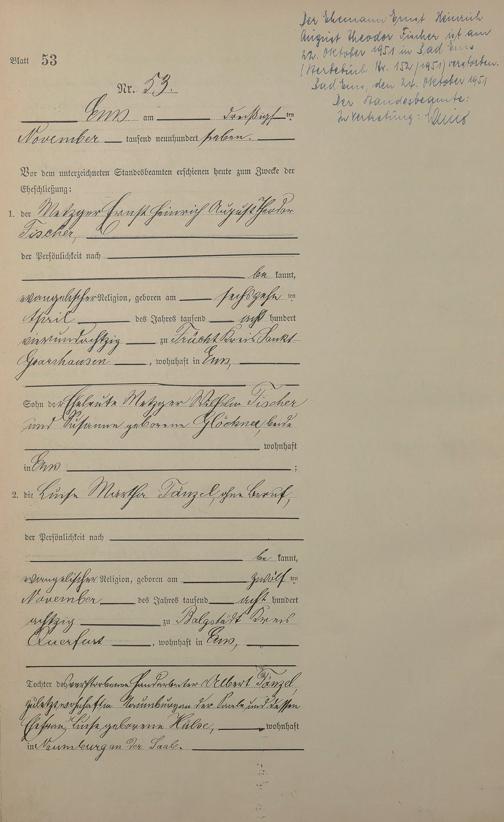 Der Ehemann Ernst Heinrich
August Theodor Fischer ist am
22. Oktober 1951 in Bad Ems
(Sterbebuch Nr. 152/1951) verstorben.
Bad Ems, den 24. Oktober 1951
Der Standesbeamte:
In Vertretung:
Blatt 53
Nr. 53.
Ems am dreißigsten
November tausend neunhundert sieben.
Vor dem unterzeichneten Standesbeamten erschienen heute zum Zwecke der
Eheschließung:
1. der Metzger Ernst Heinrich August Theodor
Fischer,
der Persönlichkeit nach
be kannt,
evangelischer Religion, geboren am sechszehnten
April des Jahres tausend acht hundert
vierundachtzig zu Frücht Kreis Sankt
Goarshausen, wohnhaft in Ems,
Sohn der Eheleute Metzger Wilhelm Fischer
und Susanne geborene Glöckner, beide
wohnhaft
in Ems ;
2. die Luise Martha Tänzel, ohne Beruf,
der Persönlichkeit nach
be kannt,
evangelischer Religion, geboren am zwölften
November des Jahres tausend acht hundert
achtzig zu Balgstädt Kreis
Querfurt, wohnhaft in Ems,
Tochter des verstorbenen Handarbeiter Albert Tänzel,
zuletzt wohnhaft in Naumburg an der Saale und dessen
Ehefrau, Luise geborene wohnhaft
in Naumburg an der Saale.